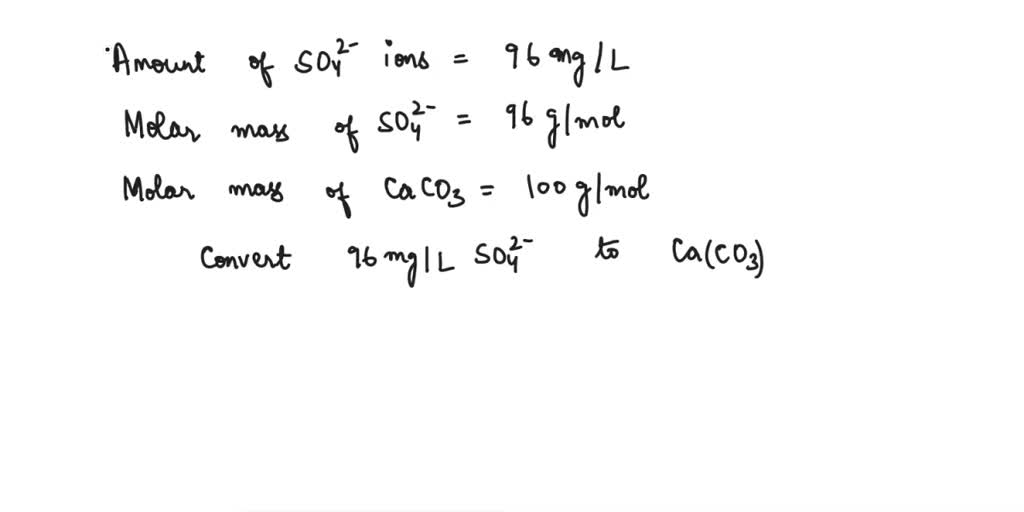 Amount of SO₄²⁻ ions = 96 mg/L
Molar mass of SO₄²⁻ = 96 g/mol
Molar mass of CaCO₃ = 100 g/mol
Convert 96 mg/L SO₄²⁻ to Ca(CO₃)